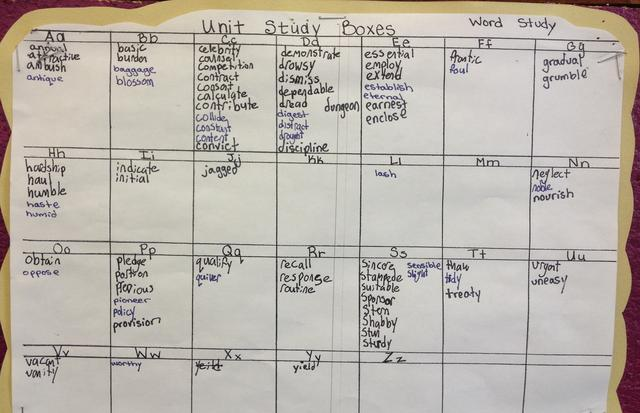 Unit Study Boxes
Word Study
Aa
annual
attractive
ambush
antique
Bb
basic
burden
baggage
blossom
Cc
celebrity
counsel
competition
contract
consent
calculate
contribute
collide
constant
content
convict
Dd
demonstrate
drowsy
dismiss
dependable
dread dungeon
digest
distract
drought
discipline
Ee
essential
employ
extend
establish
eternal
earnest
enclose
Ff
frantic
foul
Gg
gradual
grumble
Hh
hardship
haul
humble
haste
humid
Ii
indicate
initial
Jj
jagged
Kk
Ll
lash
Mm
Nn
neglect
noble
nourish
Oo
obtain
oppose
Pp
pledge
portion
pioneer
policy
provision
Qq
qualify
quiver
Rr
recall
response
routine
Ss
sincere sensible
stampede slight
suitable
sponsor
stern
shabby
stun
sturdy
Tt
thaw
tidy
treaty
Uu
urgent
uneasy
Vv
vacant
vanity
Ww
worthy
Xx
yeild
Yy
yield
Zz